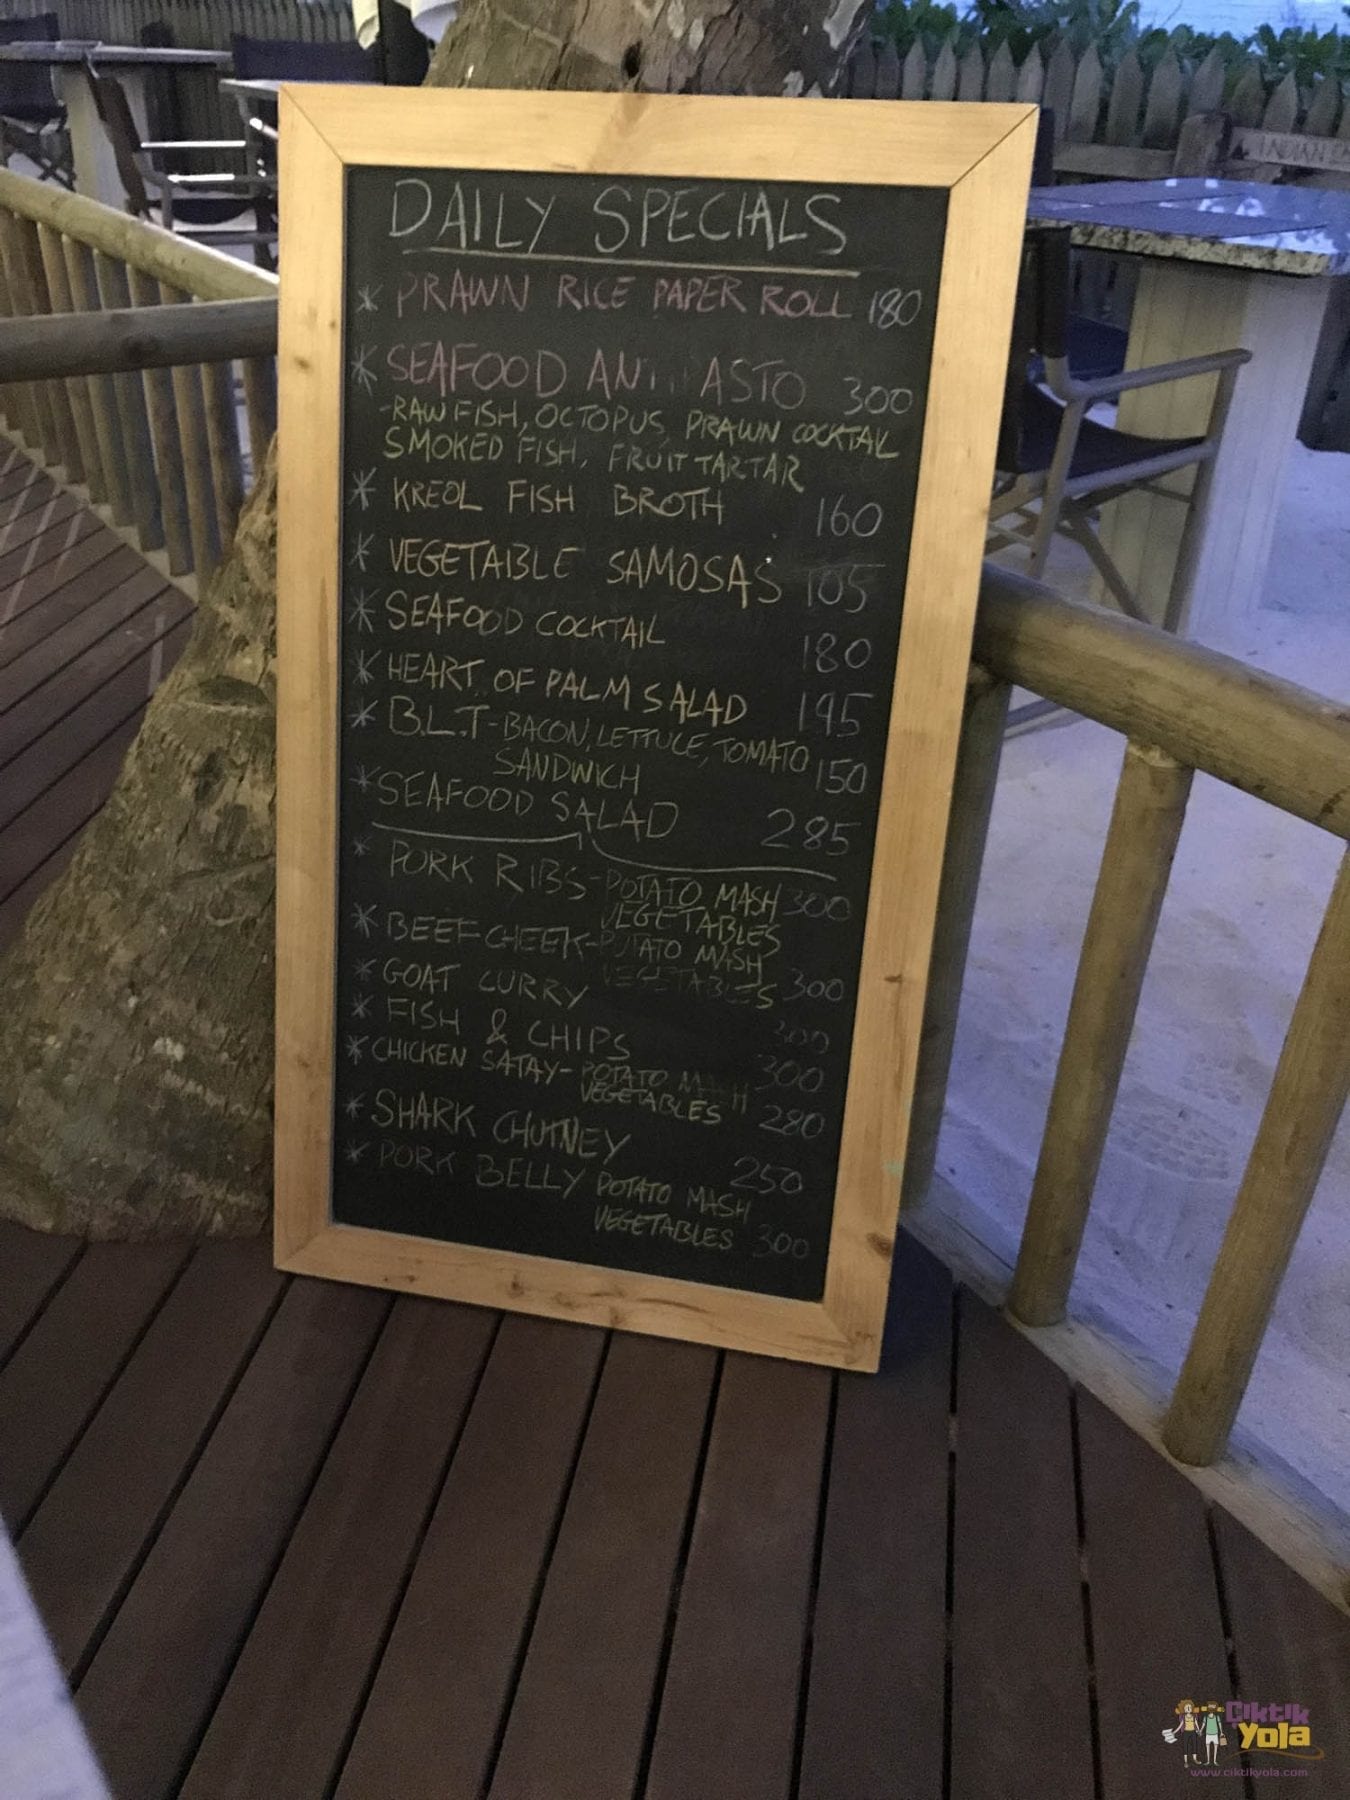 DAILY SPECIALS
* PRAWN RICE PAPER ROLL 180
* SEAFOOD ASTO 300
-RAW FISH, OCTOPUS, PRAWN COCKTAIL
SMOKED FISH, FRUIT TARTAR
* KREOL FISH BROTH 160
* VEGETABLE SAMOSAS 105
* SEAFOOD COCKTAIL 180
* HEART OF PALM SALAD 195
* B.L.T-BACON, LETTUCE, TOMATO
SANDWICH 150
* SEAFOOD SALAD 285
* PORK RIBS-POTATO MASH 300
VEGETABLES
* BEEF CHEEK-POTATO MASH
VEGETABLES 300
* GOAT CURRY 300
* FISH & CHIPS 300
* CHICKEN SATAY-POTATO MASH
VEGETABLES 280
* SHARK CHUTNEY 250
* PORK BELLY POTATO MASH
VEGETABLES 300
INDIAN
Ciktik
Yola
www.ciktikyola.com